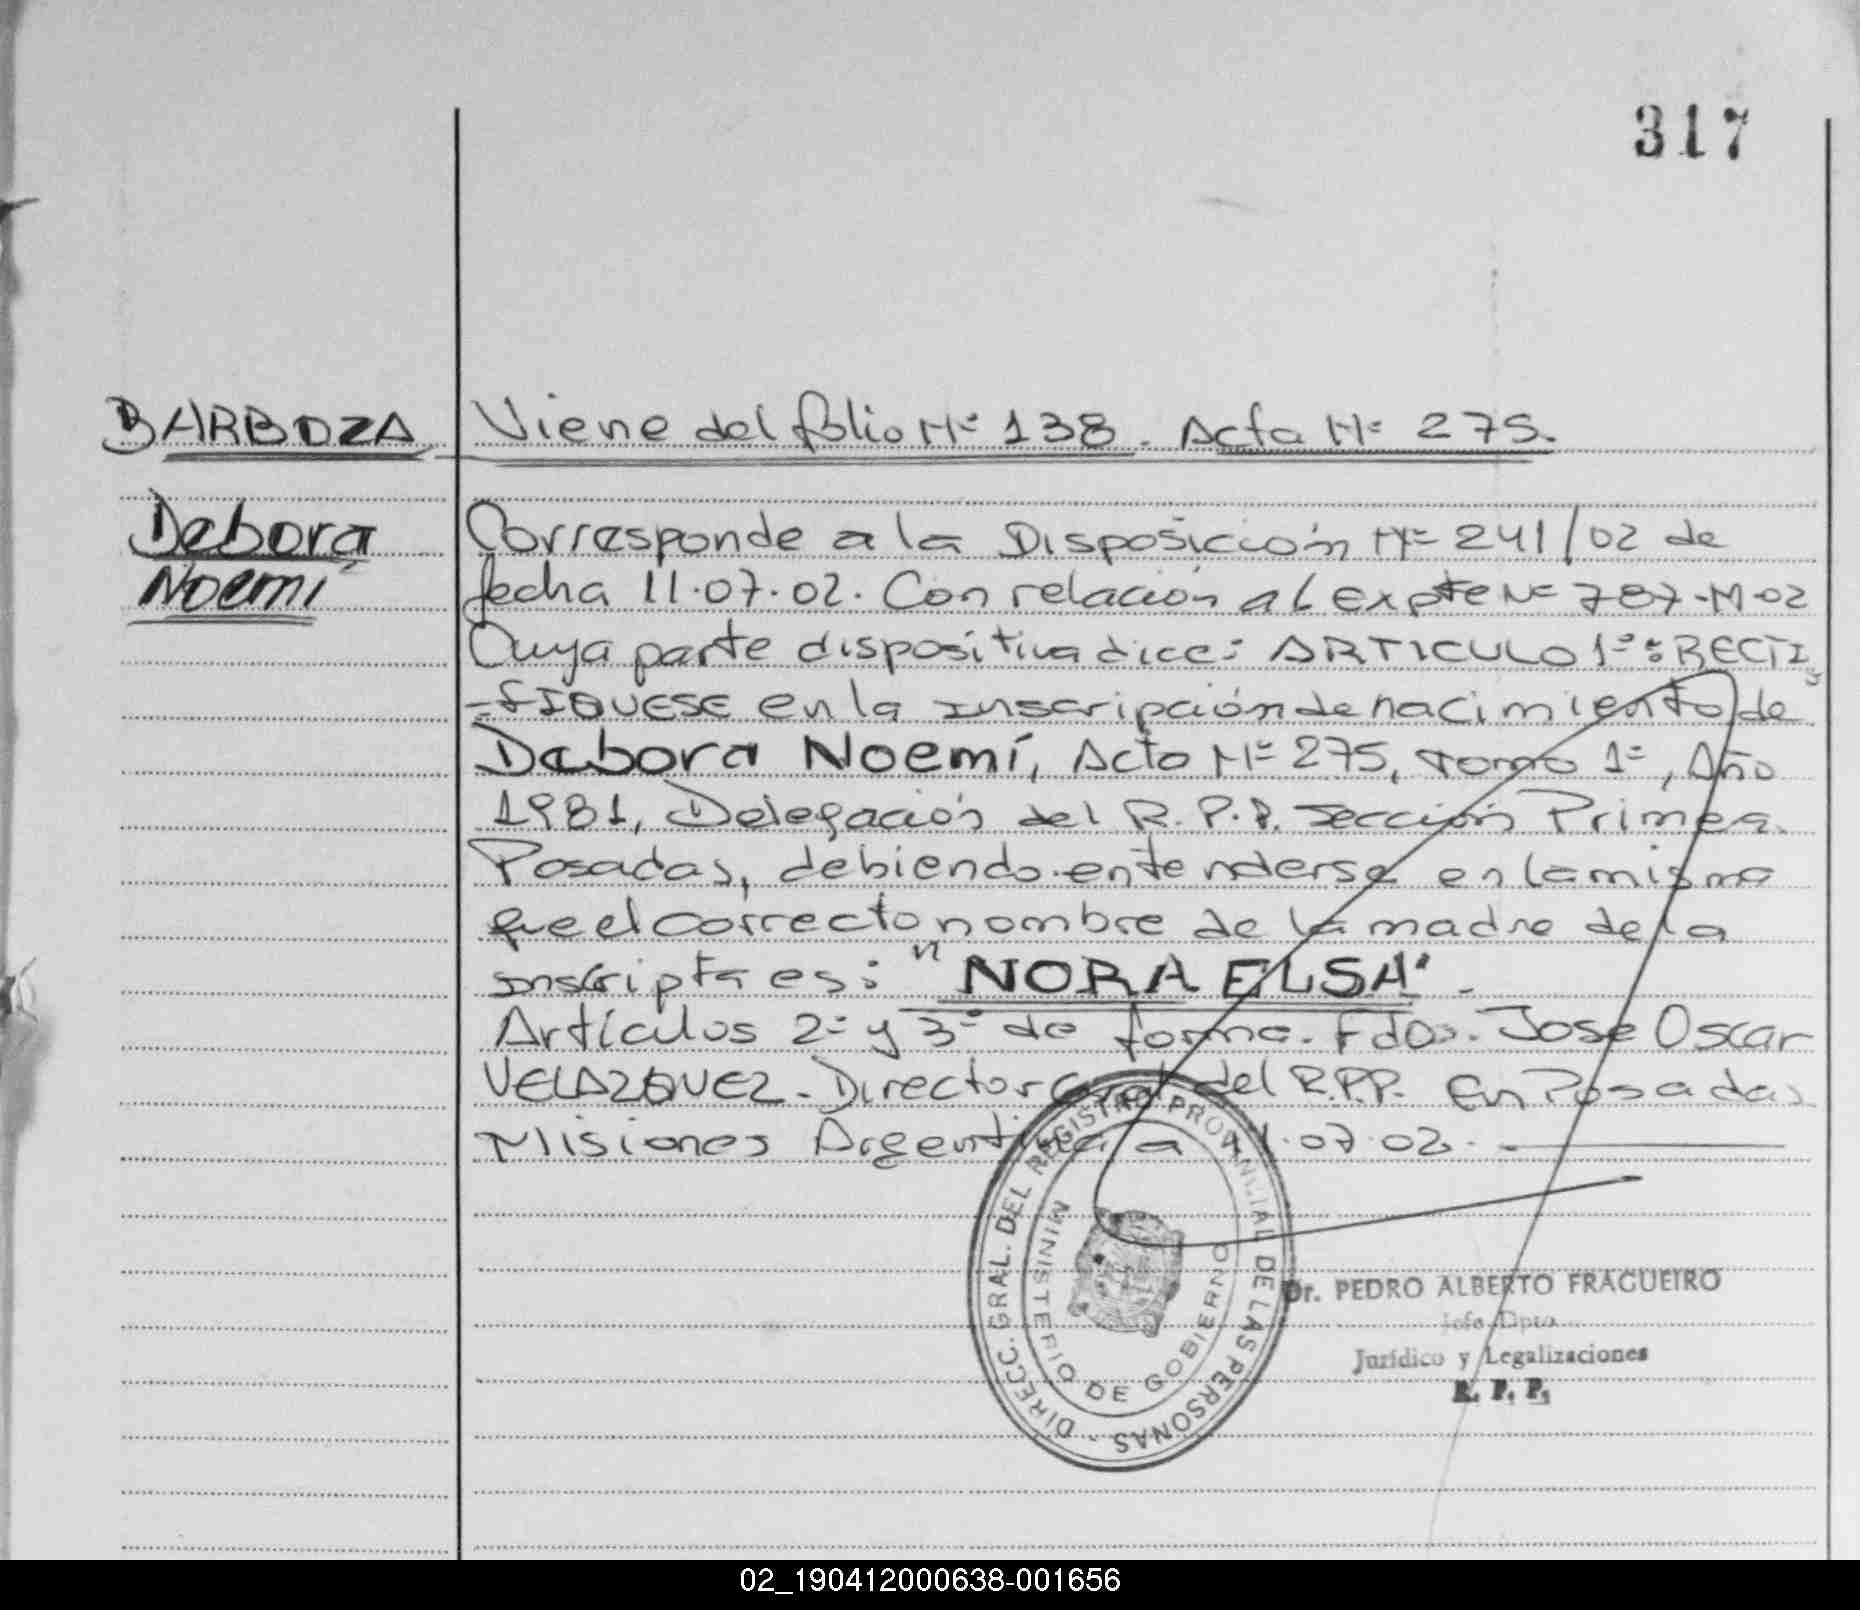 317
BARBOZA Viene del folio Nº 138. Acta Nº 275.
Debora
Noemí
Corresponde a la Disposición Nº 241/02 de
fecha 11.07.02. Con relación al expte Nº 787-M-02
Cuya parte dispositiva dice: ARTICULO 1º: RECTI
-FIQUESE en la inscripción de nacimiento de
Debora Noemí, Acta Nº 275, tomo 1º, Año
1981, Delegación del R.P.P. Sección Primera
Posadas, debiendo entenderse en la misma
que el correcto nombre de la madre de la
inscripta es: "NORA ELSA".
Artículos 2º y 3º de forma. Fdo. Jose Oscar
VELAZQUEZ. Director Gral del R.P.P. en Posadas
Misiones Argentina a 11.07.02.
DIRECC. GRAL. DEL REGISTRO PROVINCIAL DE LAS PERSONAS -
MINISTERIO DE GOBIERNO
Dr. PEDRO ALBERTO FRAGUEIRO
Jefe Dpto.
Jurídico y Legalizaciones
R. P. P.
02_190412000638-001656